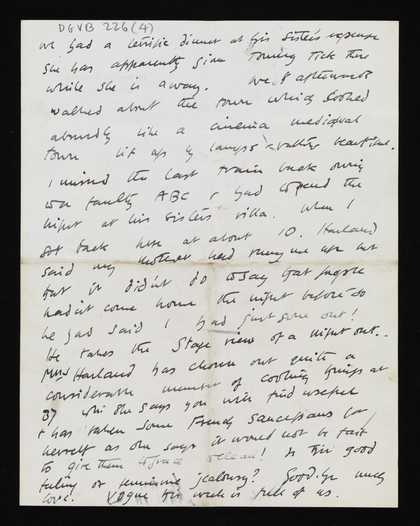 DGVB 226(4)
we had a terrific dinner at his sister's expense
she has apparently given Tommy tick there
while she is away. We afterwards
walked about the town which looked
absurdly like a cinema mediaeval
town lit up by lamps & rather beautiful.
I missed the last train back owing
to a faulty ABC & had to spend the
night at his sister's villa. When I
got back here at about 10. Harland
said my mother had rung me up but
that it didn't do to say that people
hadn't come home the night before so
he had said I had just gone out!
He takes the Stage view of a night out..
Mrs Harland has chosen out quite a
considerable number of cooking things at
37 which she says you will find useful
& has taken some French saucepans for
herself as she says it would not be fair
to give them to Grace! Is this good
feeling or feminine jealousy? Good-bye much
love. Vogue this week is full of us.